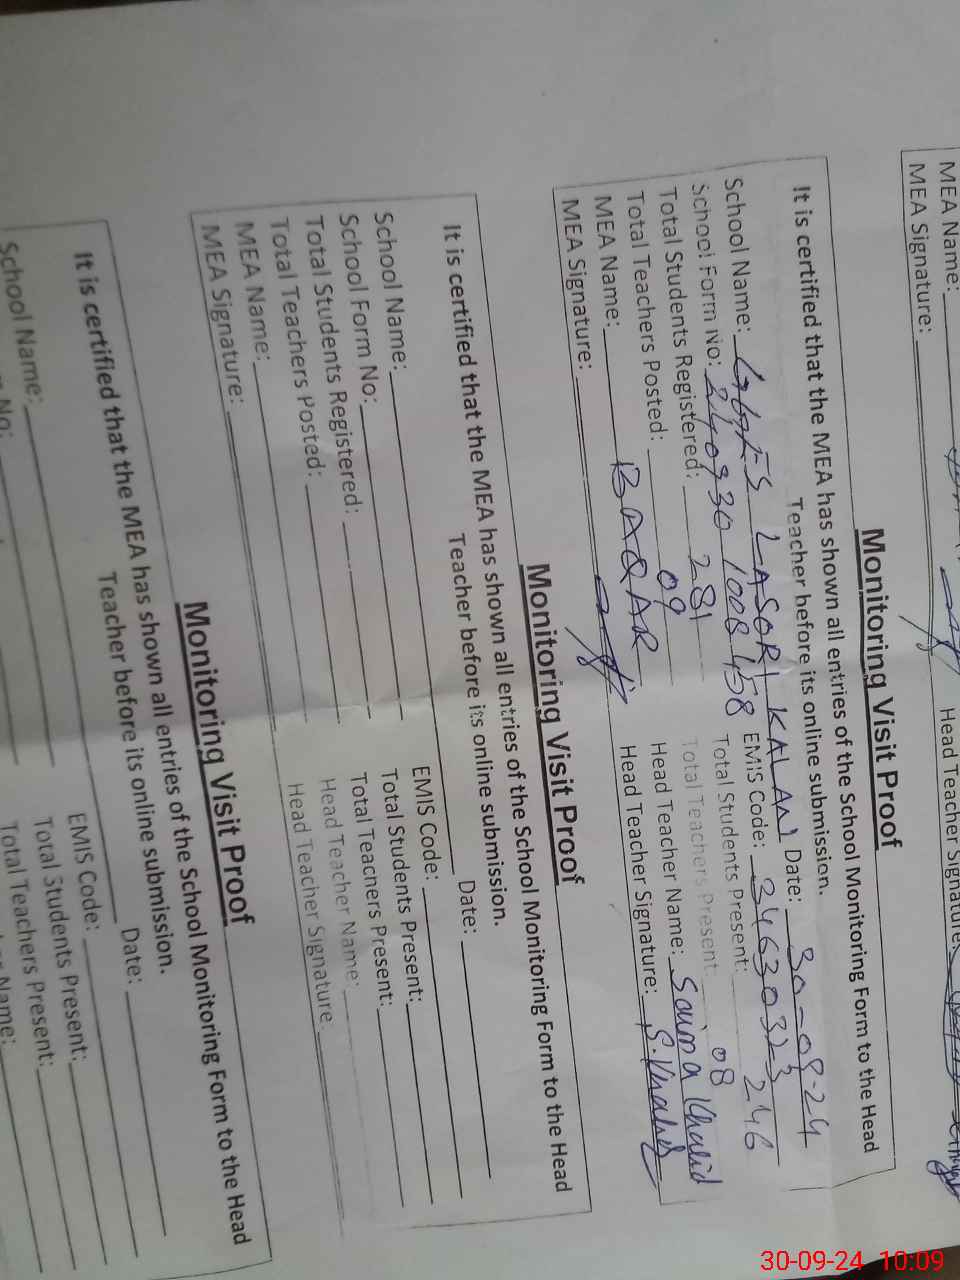 MEA Name:
MEA Signature: Head Teacher Signature:
Monitoring Visit Proof
It is certified that the MEA has shown all entries of the School Monitoring Form to the Head
Teacher before its online submission.
School Name: LASORI KALAN Date: 30-09-24
School Form No: 240930 1008458 EMIS Code: 34630323
Total Students Registered: 281 Total Students Present: 246
Total Teachers Posted: 09 Total Teachers Present: 08
MEA Name: BAQAR Head Teacher Name: Saima Khalid
MEA Signature: Head Teacher Signature: S.Khalid
Monitoring Visit Proof
It is certified that the MEA has shown all entries of the School Monitoring Form to the Head
Teacher before its online submission.
School Name: Date:
School Form No: EMIS Code:
Total Students Registered: Total Students Present:
Total Teachers Posted: Total Teachers Present:
MEA Name: Head Teacher Name:
MEA Signature: Head Teacher Signature
Monitoring Visit Proof
It is certified that the MEA has shown all entries of the School Monitoring Form to the Head
Teacher before its online submission.
School Name: Date:
No: EMIS Code:
Total Students Present:
Total Teachers Present:
Name:
30-09-24 10:09